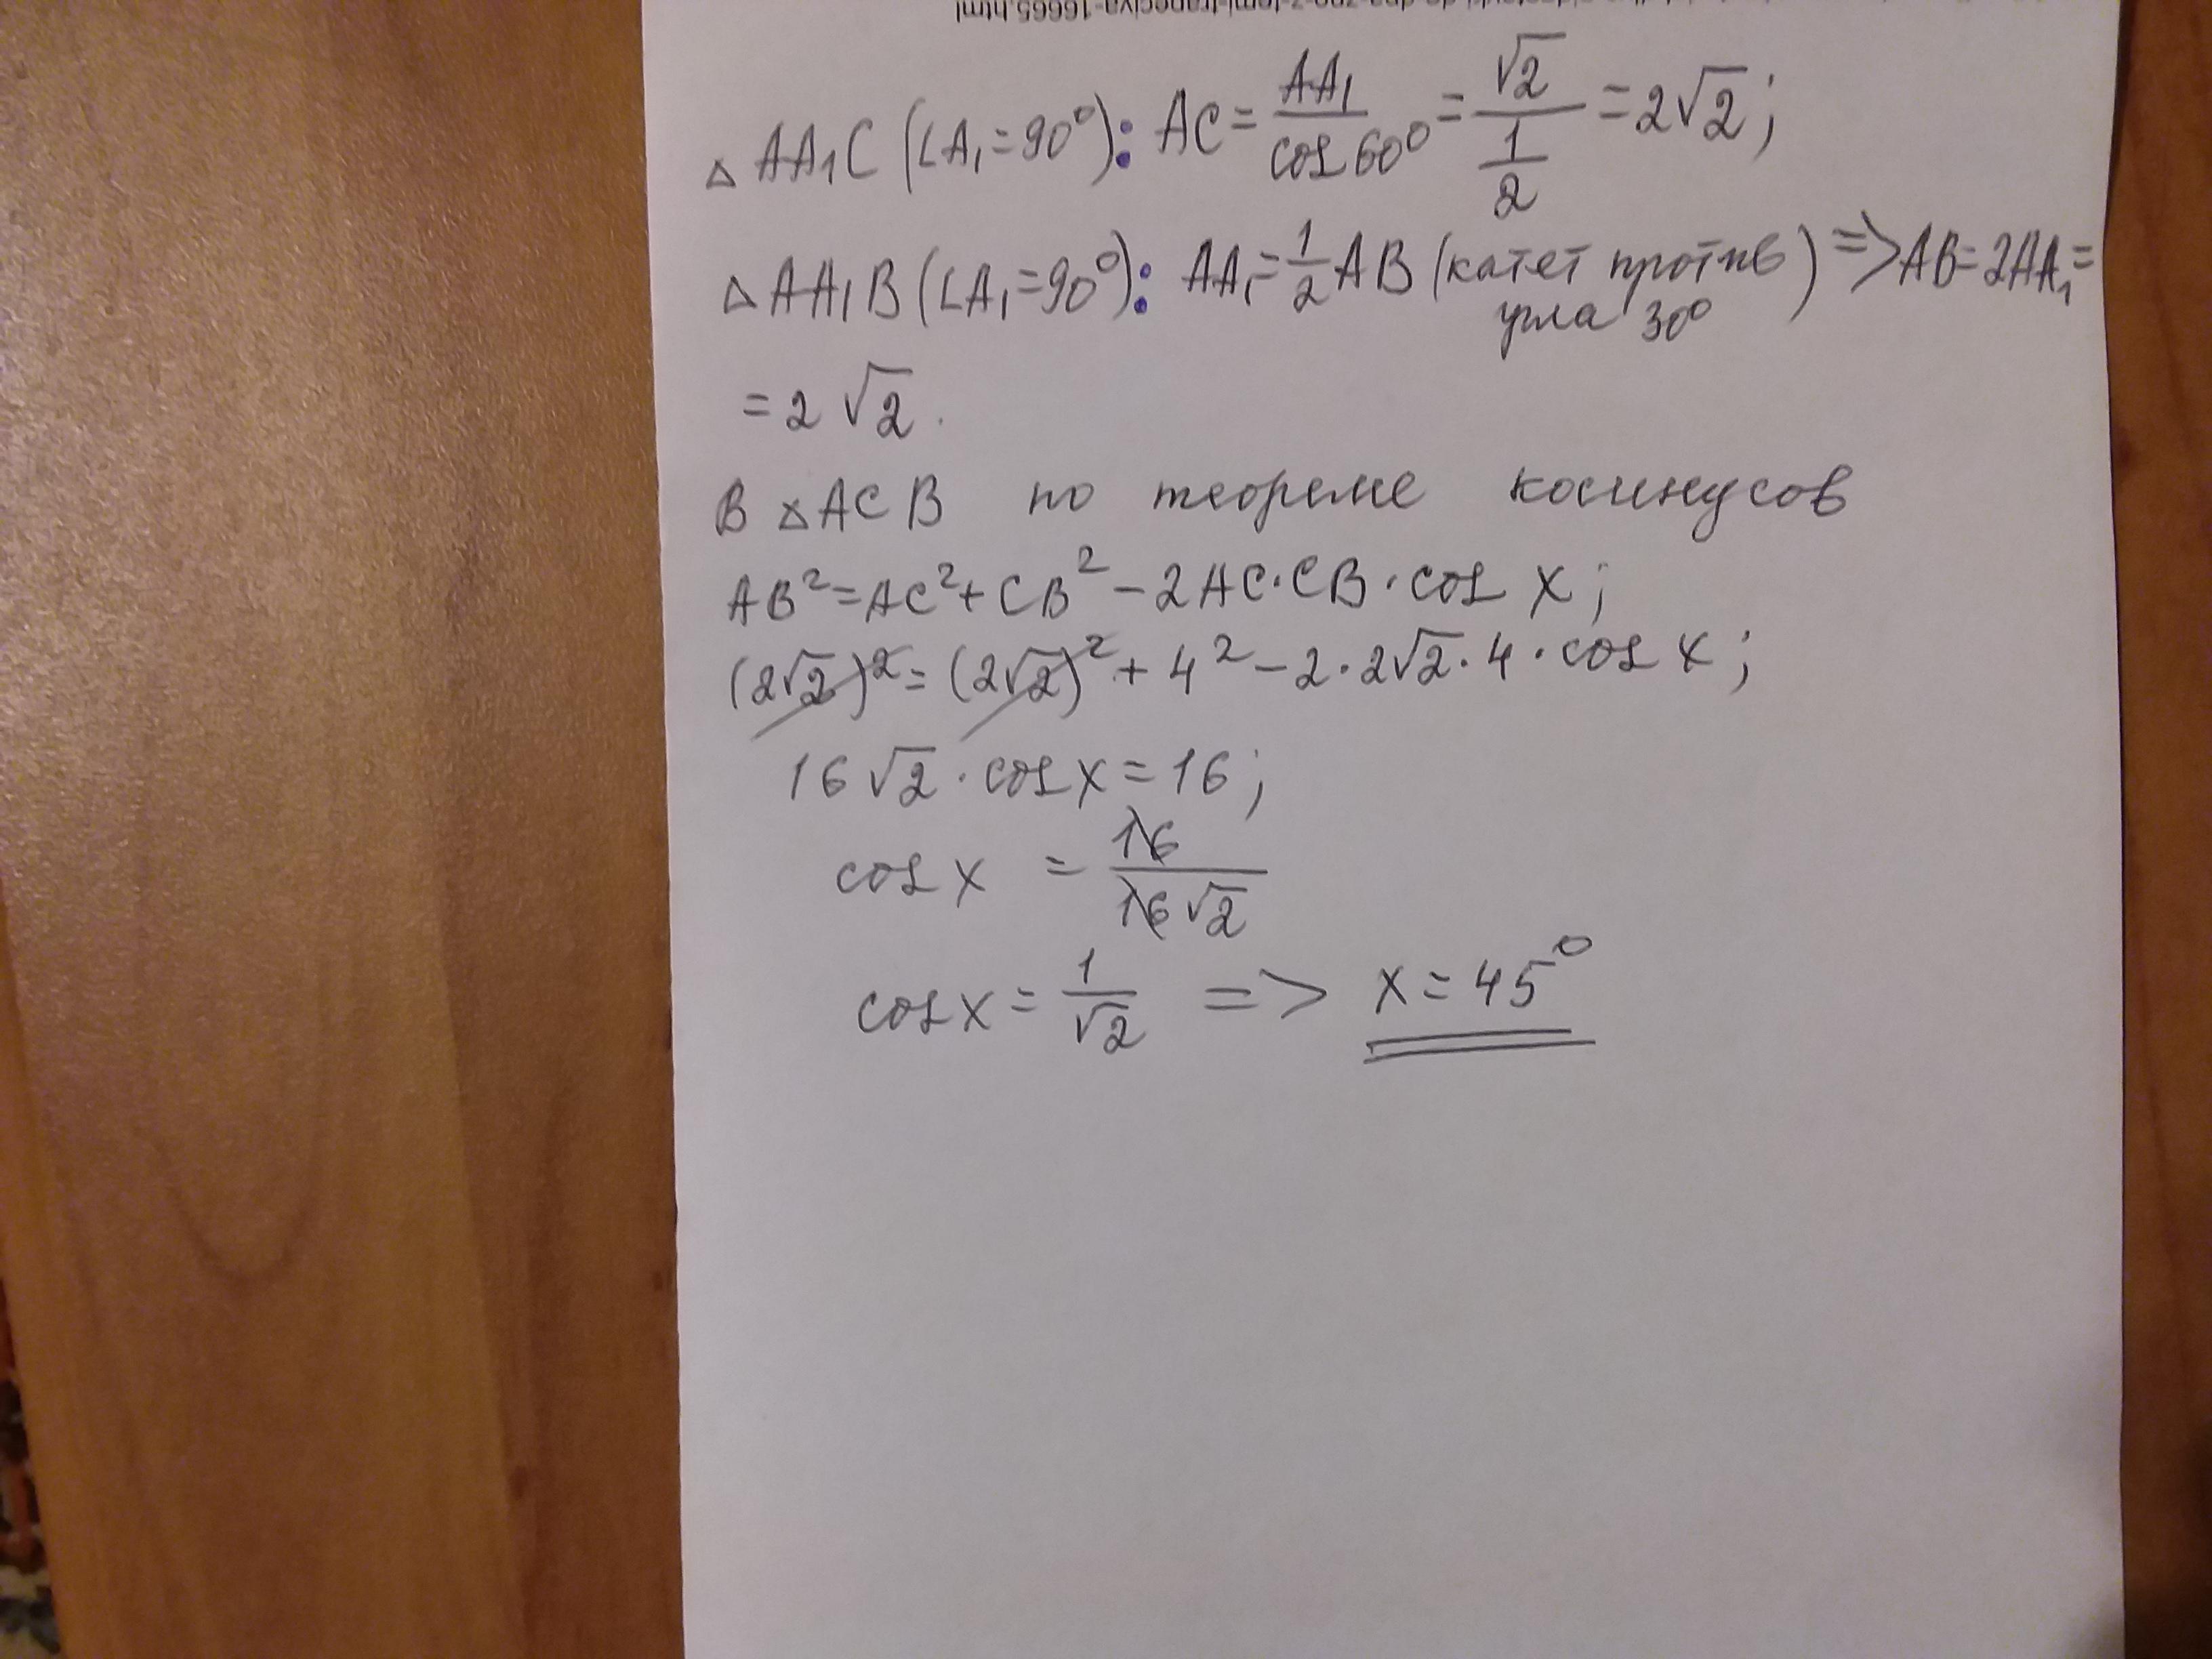 △AA₁C (∠A₁=90°): AC = AA₁/cos60° = √2/(1/2) = 2√2;
△AA₁B (∠A₁=90°): AA₁ = 1/2 AB (катет против угла 30°) => AB = 2AA₁ =
= 2√2.
В △ACB по теореме косинусов
AB² = AC² + CB² - 2AC·CB·cos x;
(2√2)² = (2√2)² + 4² - 2·2√2·4·cos x;
16√2·cos x = 16;
cos x = 16/16√2
cos x = 1/√2 => x = 45°